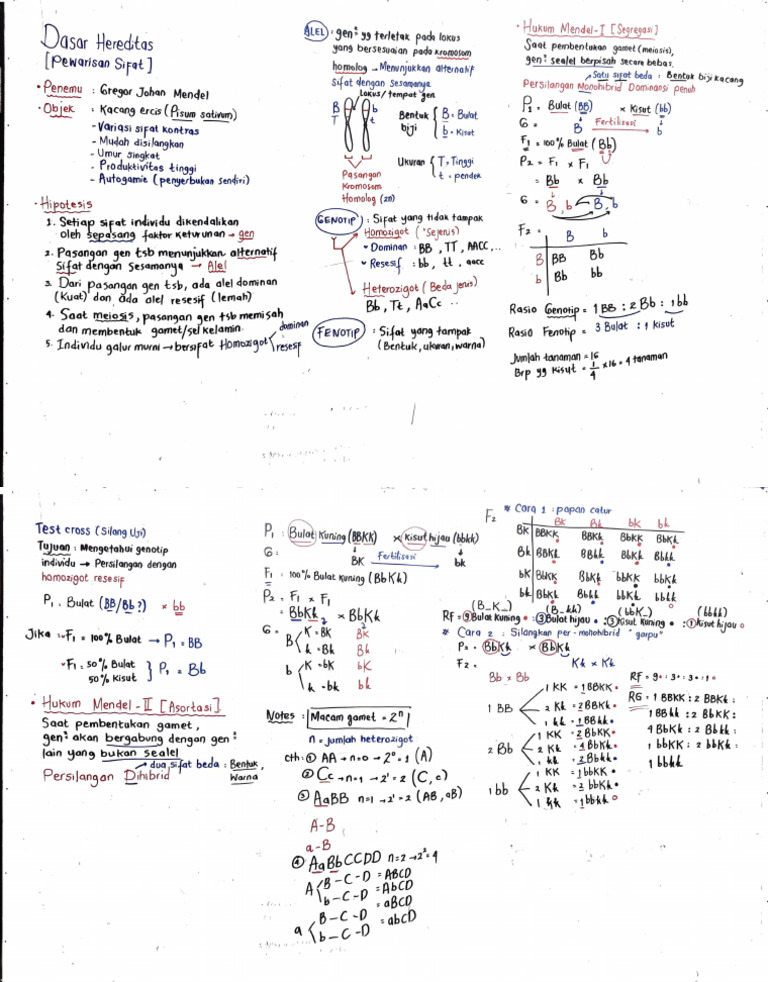 Dasar Hereditas
[Pewarisan Sifat]
• Penemu : Gregor Johan Mendel
• Objek : Kacang ercis (Pisum sativum)
- Variasi sifat kontras
- Mudah disilangkan
- Umur singkat
- Produktivitas tinggi
- Autogamie (penyerbukan sendiri)
• Hipotesis
1. Setiap sifat individu dikendalikan
oleh sepasang faktor keturunan → gen
2. Pasangan gen tsb menunjukkan alternatif
Sifat dengan Sesamanya → Alel
3. Dari pasangan gen tsb, ada alel dominan
(Kuat) dan ada alel resesif (lemah)
4. Saat meiosis, pasangan gen tsb memisah
dan membentuk gamet/sel kelamin.
5. Individu galur murni → bersifat Homozigot
dominan
resesif
ALEL : gen² yg terletak pada lokus
yang bersesuaian pada kromosom
homolog → Menunjukkan alternatif
Sifat dengan Sesamanya
Lokus/tempat gen
B b
T t
Bentuk biji { B = Bulat
b = Kisut
Ukuran { T = Tinggi
t = pendek
Pasangan
Kromosom
Homolog (2n)
GENOTIP : Sifat yang tidak tampak
Homozigot ("Sejenis)
• Dominan : BB, TT, AACC..
• Resesif : bb, tt, aacc
Heterozigot (Beda jenis)
Bb, Tt, AaCc ..
FENOTIP : Sifat yang tampak
(Bentuk, ukuran, warna)
• Hukum Mendel-I [Segregasi]
Saat pembentukan gamet (meiosis),
gen² sealel berpisah secara bebas.
Satu sifat beda : Bentuk biji kacang
Persilangan Monohibrid Dominansi penuh
P₁ = Bulat (BB) × Kisut (bb)
G = B Fertilisasi b
F₁ = 100% Bulat (Bb)
P₂ = F₁ × F₁
= Bb × Bb
G = B, b B, b
F₂ =
B b
B BB Bb
b Bb bb
Rasio Genotip = 1BB : 2Bb : 1bb
Rasio Fenotip = 3 Bulat : 1 kisut
Jumlah tanaman = 16
Brp yg Kisut = 1/4 × 16 = 4 tanaman
Test cross (Silang Uji)
Tujuan : Mengetahui genotip
individu → Persilangan dengan
homozigot resesif
P₁ = Bulat (BB/Bb?) × bb
Jika : • F₁ = 100% Bulat → P₁ = BB
• F₁ = 50% Bulat
50% Kisut } P₁ = Bb
• Hukum Mendel-II [Asortasi]
Saat pembentukan gamet,
gen² akan bergabung dengan gen²
lain yang bukan sealel
dua sifat beda : Bentuk,
Warna
Persilangan Dihibrid
P₁ : Bulat Kuning (BBKK) × Kisut hijau (bbkk)
G : BK Fertilisasi bk
F₁ : 100% Bulat Kuning (BbKk)
P₂ = F₁ × F₁
= BbKk × BbKk
G =
B K = BK BK
k = Bk Bk
b K = bK bK
k = bk bk
Notes : Macam gamet = 2ⁿ
n = jumlah heterozigot
cth : ① AA → n=0 → 2⁰ = 1 (A)
② Cc → n=1 → 2¹ = 2 (C, c)
③ AaBB n=1 → 2¹ = 2 (AB, aB)
A-B
a-B
④ AaBbCCDD n=2 → 2² = 4
A B-C-D = ABCD
b-C-D = AbCD
a B-C-D = aBCD
b-C-D = abCD
* Cara 1 : papan catur
F₂
BK Bk bK bk
BK BBKK BBKk BbKK BbKk
Bk BBKk BBkk BbKk Bbkk
bK BbKK BbKk bbKK bbKk
bk BbKk Bbkk bbKk bbkk
(B_K_) (B_kk) (bbK_) (bbkk)
Rf = ⑨ Bulat Kuning : ③ Bulat hijau : ③ Kisut Kuning : ① Kisut hijau
* Cara 2 : Silangkan per-monohibrid "garpu"
P₂ = BbKk × BbKk
F₂ =
Bb × Bb Kk × Kk
1 BB
1 KK = 1 BBKK
2 Kk = 2 BBKk
1 kk = 1 BBkk
2 Bb
1 KK = 2 BbKK
2 Kk = 4 BbKk
1 kk = 2 Bbkk
1 bb
1 KK = 1 bbKK
2 Kk = 2 bbKk
1 kk = 1 bbkk
Rf = 9 : 3 : 3 : 1
RG = 1 BBKK : 2 BBKk :
1 BBkk : 2 BbKK :
4 BbKk : 2 Bbkk :
1 bbKK : 2 bbKk :
1 bbkk